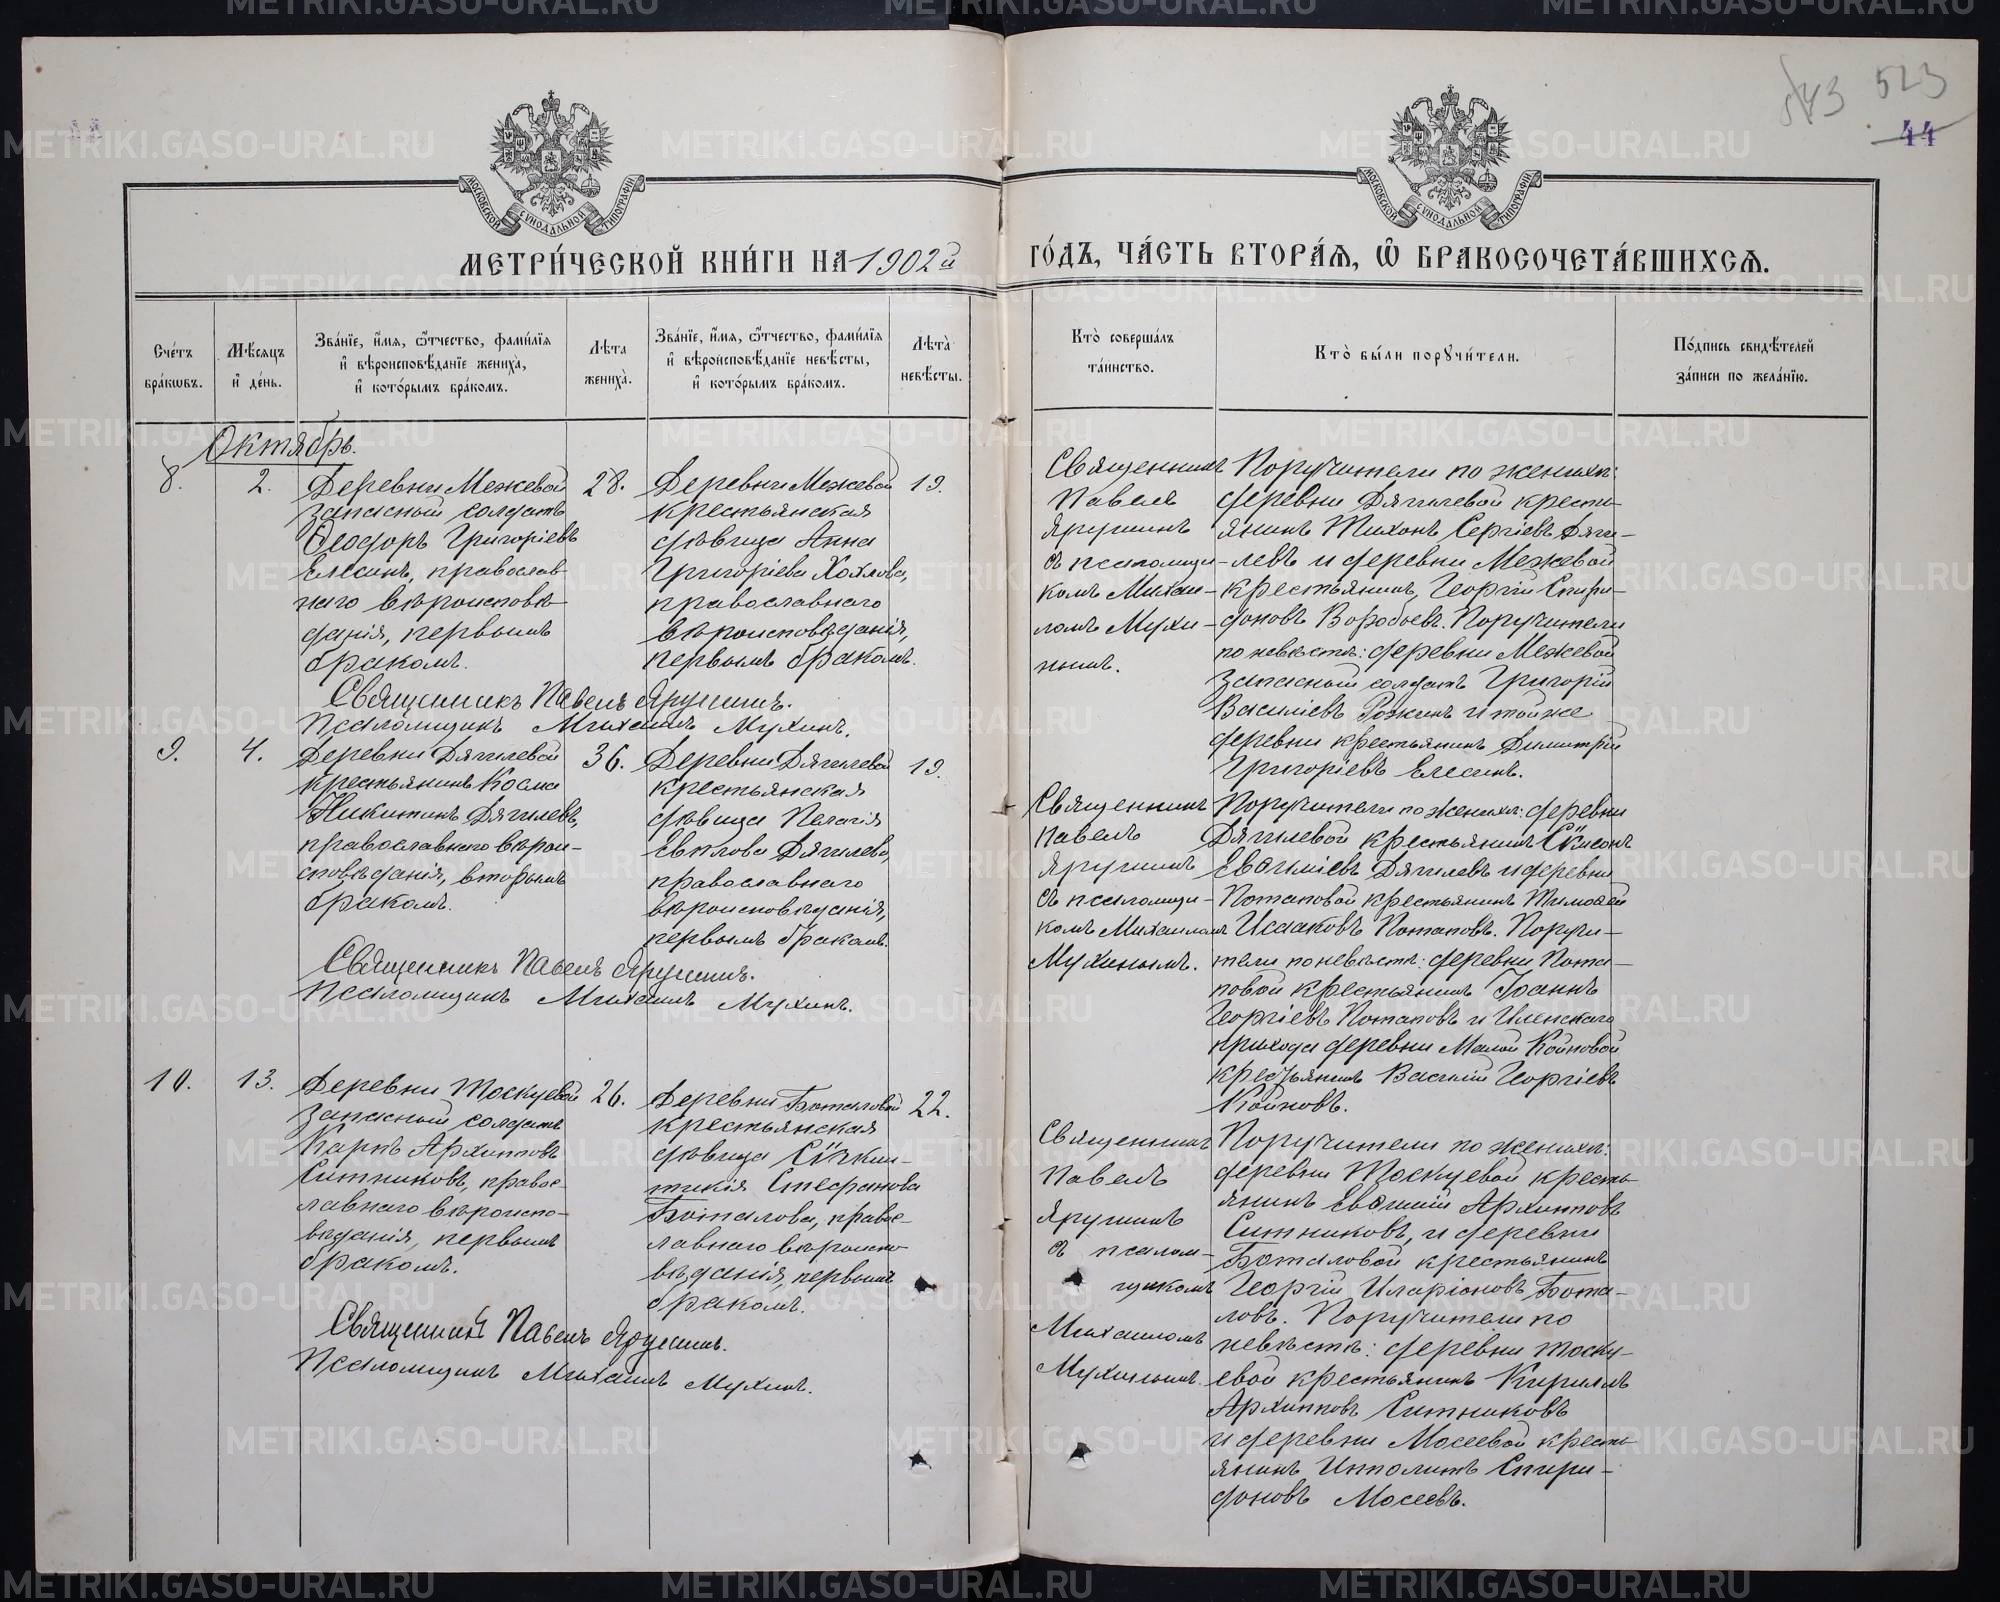 543 523
44
МОСКОВСКОЙ СѴНОДАЛЬНОЙ ТИПОГРАФІИ
МОСКОВСКОЙ СѴНОДАЛЬНОЙ ТИПОГРАФІИ
МЕТРИ́ЧЕСКОЙ КНИ́ГИ НА 1902й
ГО́ДЪ, ЧА́СТЬ ВТОРА́Ѧ, Ѽ БРАКОСОЧЕТА́ВШИХСѦ.
Сче́тъ
бра́кѡвъ.
Мѣ́сѧцъ
и҆ де́нь.
Зва́нїе, и҆́мѧ, ѻ҆́тчество, фами́лїѧ
и҆ вѣроисповѣ́данїе жениха̀,
и҆ кото́рымъ бра́комъ.
Лѣ́та
жениха̀.
Зва́нїе, и҆́мѧ, ѻ҆́тчество, фами́лїѧ
и҆ вѣроисповѣ́данїе невѣ́сты,
и҆ кото́рымъ бра́комъ.
Лѣ́та
невѣ́сты.
Кто̀ соверша́лъ
та́инство.
Кто̀ бы́ли порꙋчи́тели.
По́дпись свидѣ́телей
за́писи по жела́нїю.
Октябрь.
8.
2.
Деревни Межевой
запасный солдатъ
Ѳеодоръ Григоріевъ
Елесинъ, православ-
наго вѣроисповѣ-
данія, первымъ
бракомъ.
28.
Деревни Межевой
крестьянская
дѣвица Анна
Григоріева Хохлова,
православнаго
вѣроисповѣданія,
первымъ бракомъ.
19.
Священникъ
Павелъ
Ярушинъ
съ псаломщи-
комъ Михаи-
ломъ Мухи-
нымъ.
Поручители по женихѣ:
деревни Дягилевой кресть-
янинъ Тихонъ Сергіевъ Дяги-
левъ и деревни Межевой
крестьянинъ Георгій Спири-
доновъ Воробьевъ. Поручители
по невѣстѣ: деревни Межевой
запасный солдатъ Григорій
Василіевъ Рожинъ и той же
деревни крестьянинъ Димитрій
Григоріевъ Елесинъ.
Священникъ Павелъ Ярушинъ.
Псаломщикъ Михаилъ Мухинъ.
9.
4.
Деревни Дягилевой
крестьянинъ Косма
Никитинъ Дягилевъ,
православнаго вѣрои-
сповѣданія, вторымъ
бракомъ.
36.
Деревни Дягилевой
крестьянская
дѣвица Пелагія
Евплова Дягилева,
православнаго
вѣроисповѣданія,
первымъ бракомъ.
19.
Священникъ
Павелъ
Ярушинъ
съ псаломщи-
комъ Михаиломъ
Мухинымъ.
Поручители по женихѣ: деревни
Дягилевой крестьянинъ
Евѳиміевъ Дягилевъ и деревни
Потаповой крестьянинъ Тимоѳей
Исааковъ Потаповъ. Поручи-
тели по невѣстѣ: деревни Пота-
повой крестьянинъ Іоаннъ
Георгіевъ Потаповъ и Иленскаго
прихода деревни Малой Койновой
крестьянинъ Василій Георгіевъ
Койновъ.
Священникъ Павелъ Ярушинъ.
Псаломщикъ Михаилъ Мухинъ.
10.
13.
Деревни Москуевой
запасный солдатъ
Карпъ Архиповъ
Ситниковъ, правос-
лавнаго вѣроиспо-
вѣданія, первымъ
бракомъ.
26.
Деревни Боталовой
крестьянская
дѣвица Сѵнкли-
тикія Стефанова
Боталова, правос-
лавнаго вѣроиспо-
вѣданія, первымъ
бракомъ.
22.
Священникъ
Павелъ
Ярушинъ
съ псалом-
щикомъ
Михаиломъ
Мухинымъ.
Поручители по женихѣ:
деревни Москуевой кресть-
янинъ Евѳимій Архиповъ
Ситниковъ, и деревни
Боталовой крестьянинъ
Георгій Иларіоновъ Бота-
ловъ. Поручители по
невѣстѣ: деревни Моску-
евой крестьянинъ Кириллъ
Архиповъ Ситниковъ
и деревни Мосеевой кресть-
янинъ Ипполитъ Спири-
доновъ Мосеевъ.
Священникъ Павелъ Ярушинъ.
Псаломщикъ Михаилъ Мухинъ.
METRIKI.GASO-URAL.RU